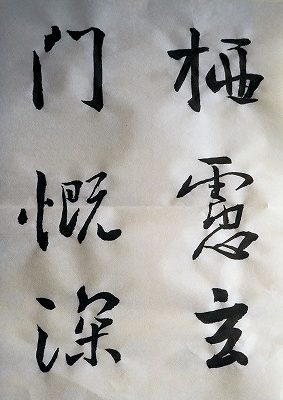 栖慮玄
门慨深